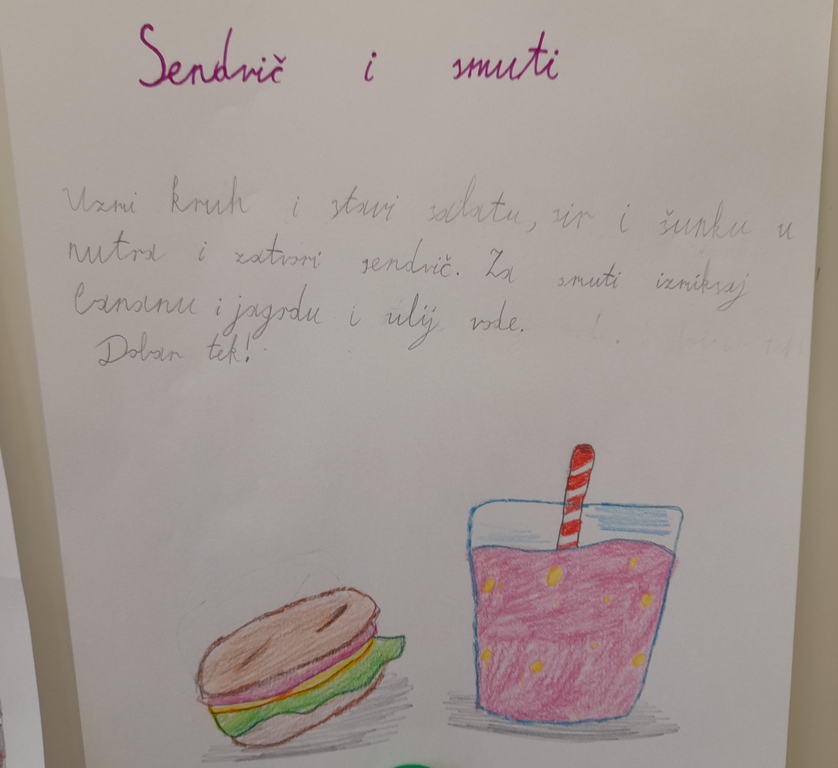 Sendvič i smuti
Uzmi kruh i stavi salatu, sir i šunku u
nutra i zatvori sendvič. Za smuti izmiksaj
bananu i jagodu i ulij vode.
Dobar tek!